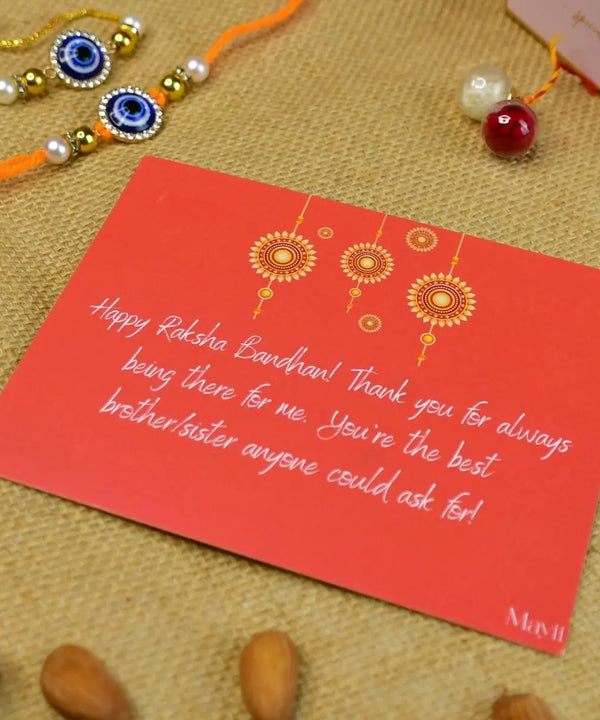 Happy Raksha Bandhan! Thank you for always
being there for me. You're the best
brother/sister anyone could ask for!